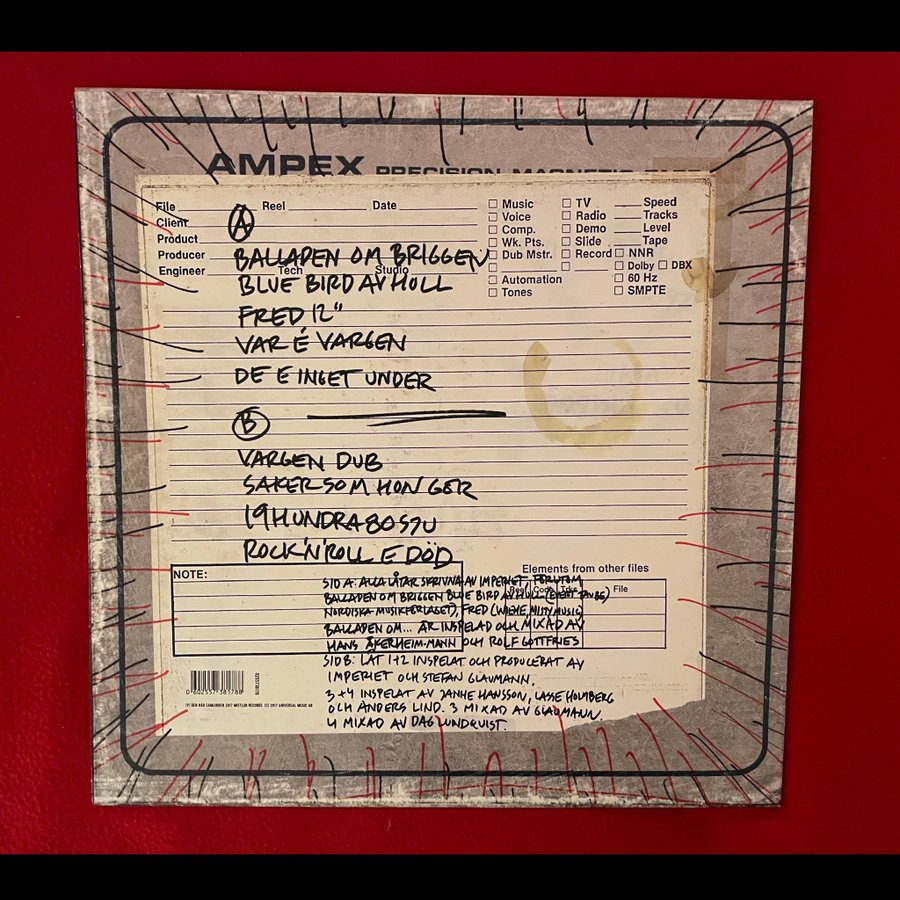 AMPEX PRECISION MAGNETIC TAPE
File Reel Date
Client
Product
Producer
Engineer Tech Studio
Music
Voice
Comp.
Wk. Pts.
Dub Mstr.
Automation
Tones
TV
Radio
Demo
Slide
Record
Speed
Tracks
Level
Tape
NNR
Dolby DBX
60 Hz
SMPTE
A
BALLADEN OM BRIGGEN
BLUE BIRD AV HULL
FRED 12"
VAR É VARGEN
DE E INGET UNDER
B
VARGEN DUB
SAKER SOM HON GER
19HUNDRA80SJU
ROCK'N'ROLL E DÖD
NOTE:
Elements from other files
Reel Code Take File
SID A: ALLA LÅTAR SKRIVNA AV IMPERIET, FÖRUTOM
BALLADEN OM BRIGGEN BLUE BIRD AV HULL (EVERT TAUBE)
NORDISKA MUSIKFÖRLAGET), FRED (WIEHE, MISTY MUSIC)
BALLADEN OM... ÄR INSPELAD OCH MIXAD AV
HANS ÅKERHEIM-MANN OCH ROLF GOTTFRIES
SID B: LÅT 1+2 INSPELAT OCH PRODUCERAT AV
IMPERIET OCH STEFAN GLAUMANN.
3+4 INSPELAT AV JANNE HANSSON, LASSE HOLMBERG
OCH ANDERS LIND. 3 MIXAD AV GLAUMANN.
4 MIXAD AV DAG LUNDQUIST.
0 602557 381788